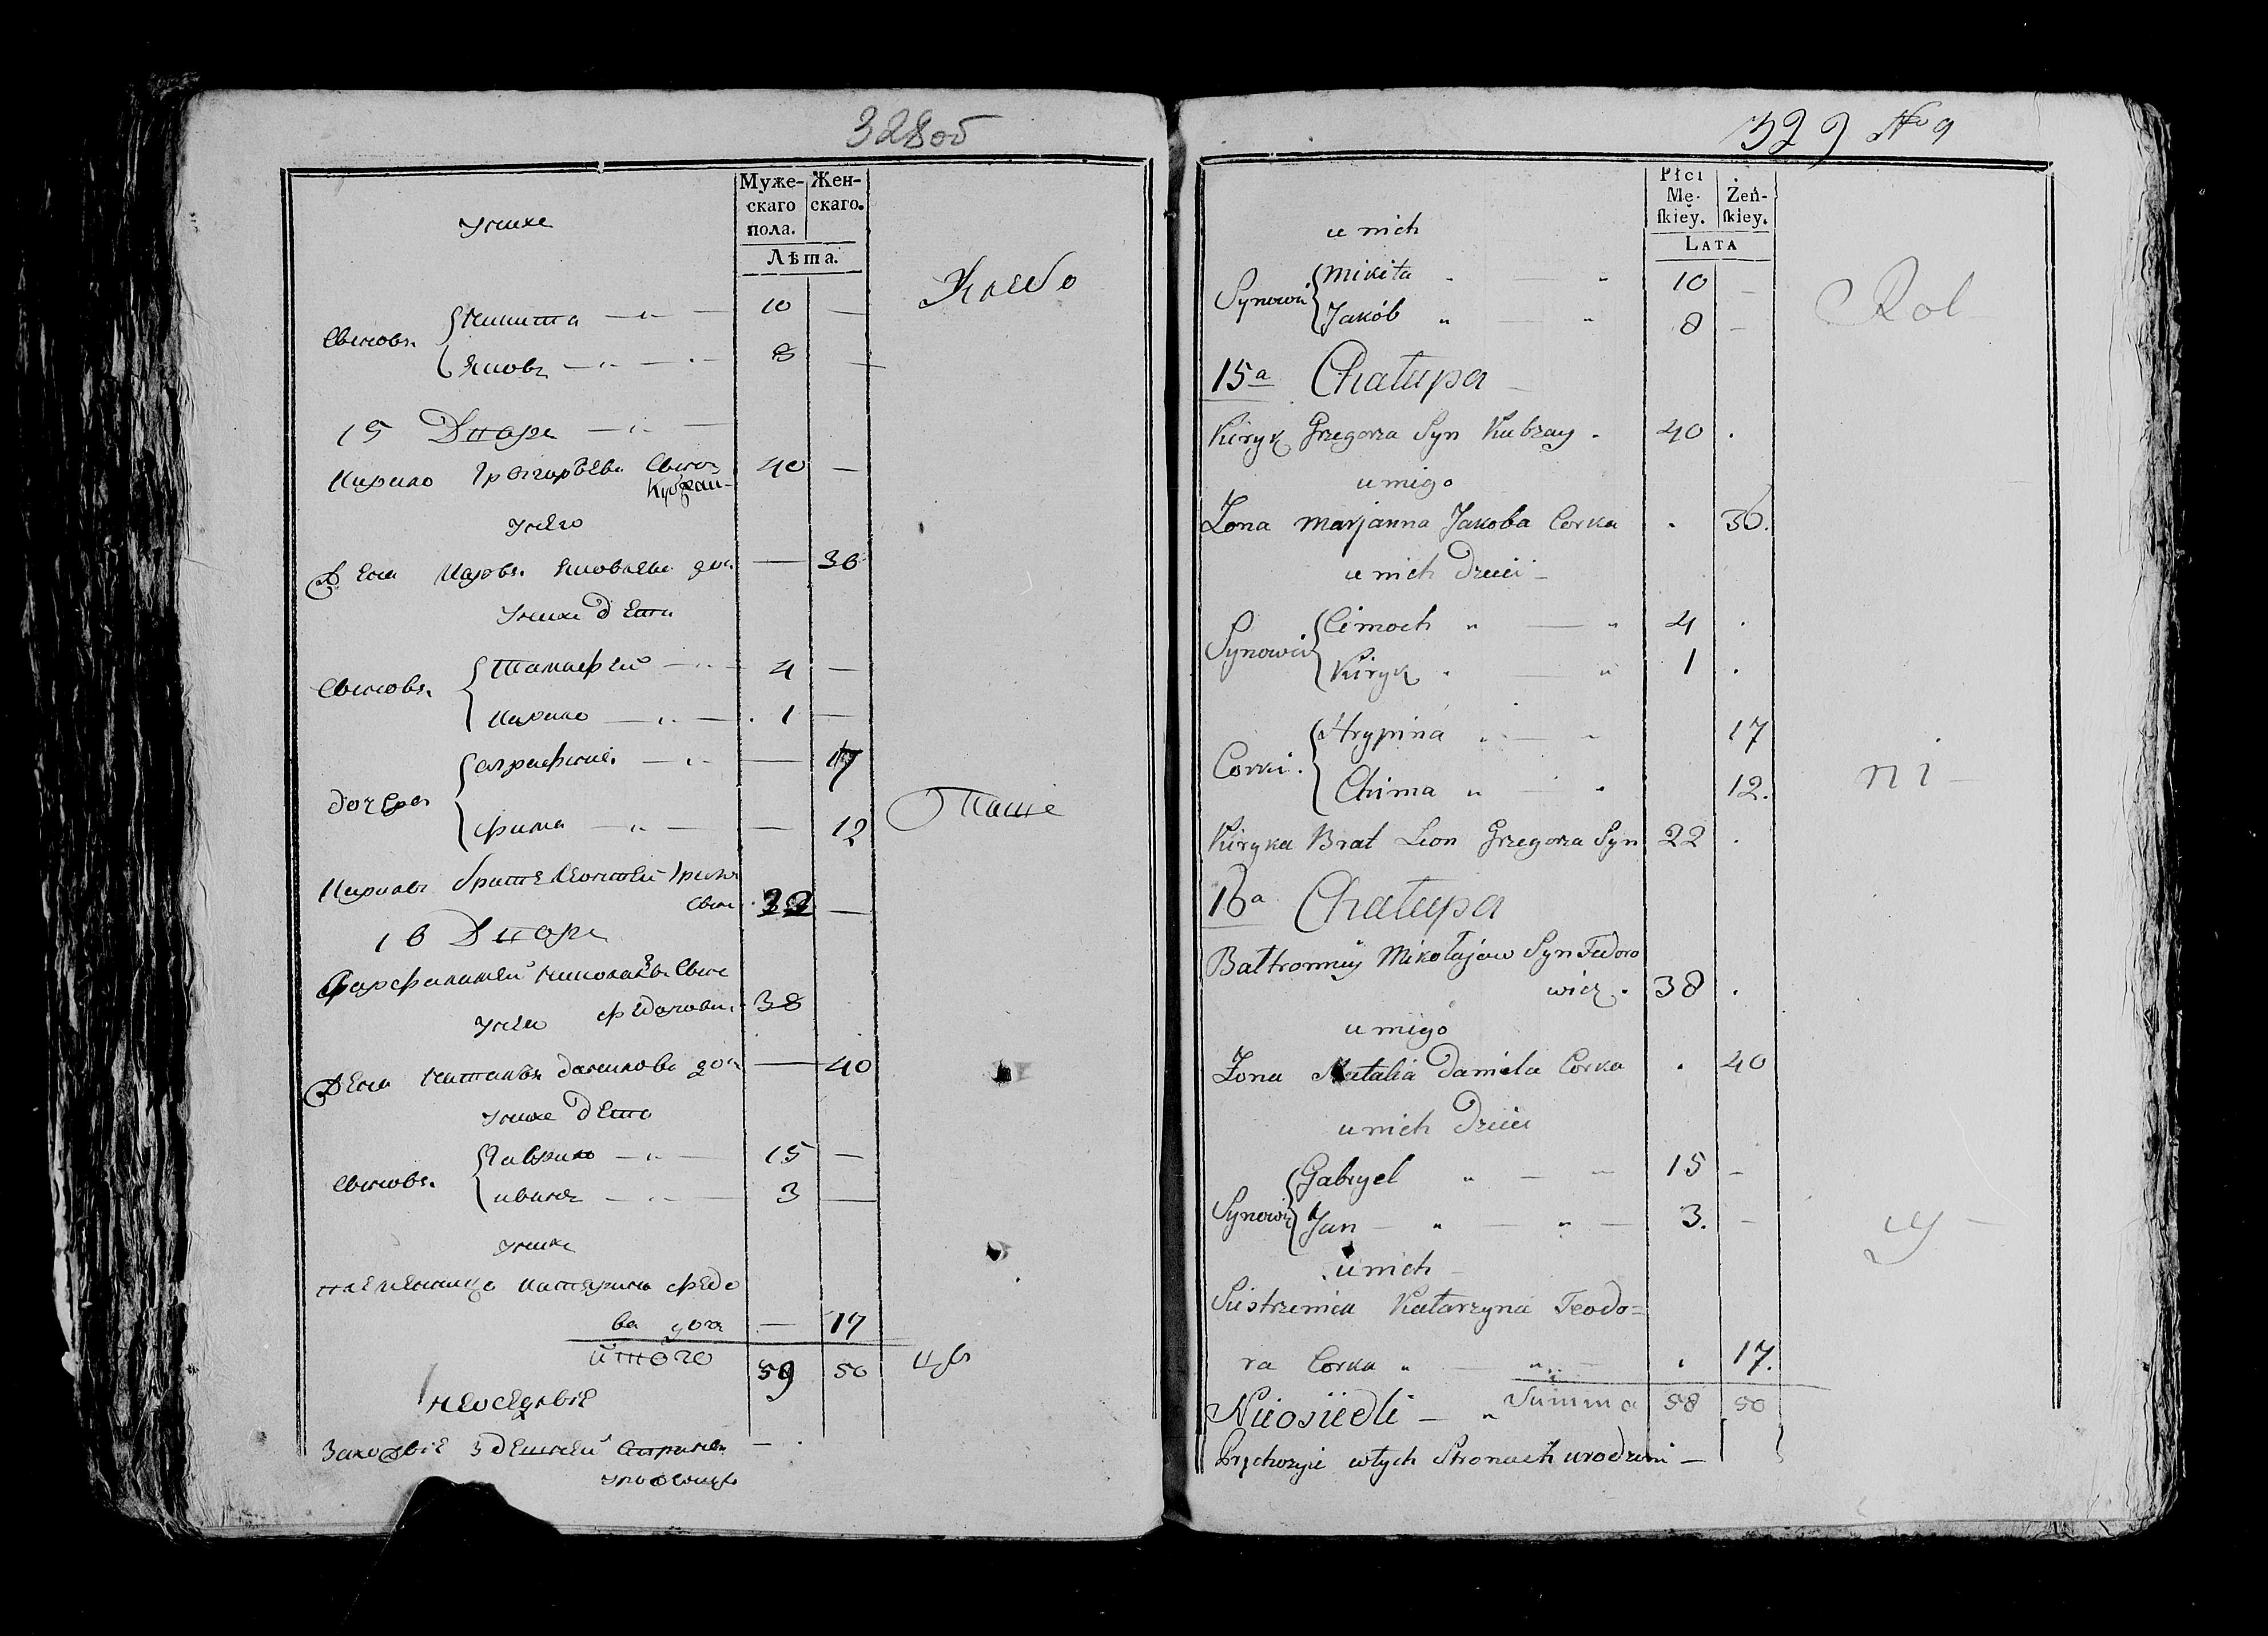 328об
Муже-
скаго
пола.
Жен-
скаго.
Лѣта.
Унихъ
Хлебо
Сыновя
Никита — „ — 10 —
Яковъ — „ — 8 —
15 Дворъ — „ —
Кирило Григорьевъ Сынъ 40 —
Кубрай
унего
Жена Марья Яковлева доч — 36
Унихъ Дети
Сыновя
Тимафей — „ — 4 —
Кирило — „ — 1 —
дочери
аграфена — „ — — 17
фима — „ — — 12
Паше
Кирила братъ Леонтей Григ
Сынъ 22 —
16 Дворъ
Варфаламей Николаевъ Сынъ
унего Федорович 38
Жена Наталья данилова доч — 40
Унихъ Дети
Сыновя
Гаврило — „ — 15 —
иванъ — „ — 3 —
унихъ
племеница катерина федо
ва доч — 17
итого 59 50
цы
неоседлые
Захожые здешней стороны
уроженцы
329 No 9
Płci
Mę-
skiey.
Żeń-
skiey.
LATA
u nich
Synowie
Mikita „ — „ 10 —
Jakób „ — „ 8 —
Rol
15a Chałupa —
Kiryk Grzegorza Syn Kubray . 40 .
u niego
Żona Marjanna Jakoba Corka . 36.
u nich Dzieci —
Synowie
Cimoch „ — „ 4 .
Kiryk „ — „ 1 .
Corki.
Hrypina „ — „ 17
Chima „ — „ 12.
ni —
Kiryka Brat Leon Grzegorza Syn 22 .
16a Chałupa
Bałtromiey Mikołajow Syn Fedoro
wicz . 38 .
u niego
Żona Natalia Daniela Corka . 40
u nich Dzieci
Synowie
Gabryel „ — „ 15 —
Jan — „ — „ — 3. —
cy —
u nich —
Siestrzenica Katarzyna Teodo=
ra Corka „ — „ — . 17.
Summa 58 50
Nieosiedli — „
Przychozyie w tych Stronach urodzeni —